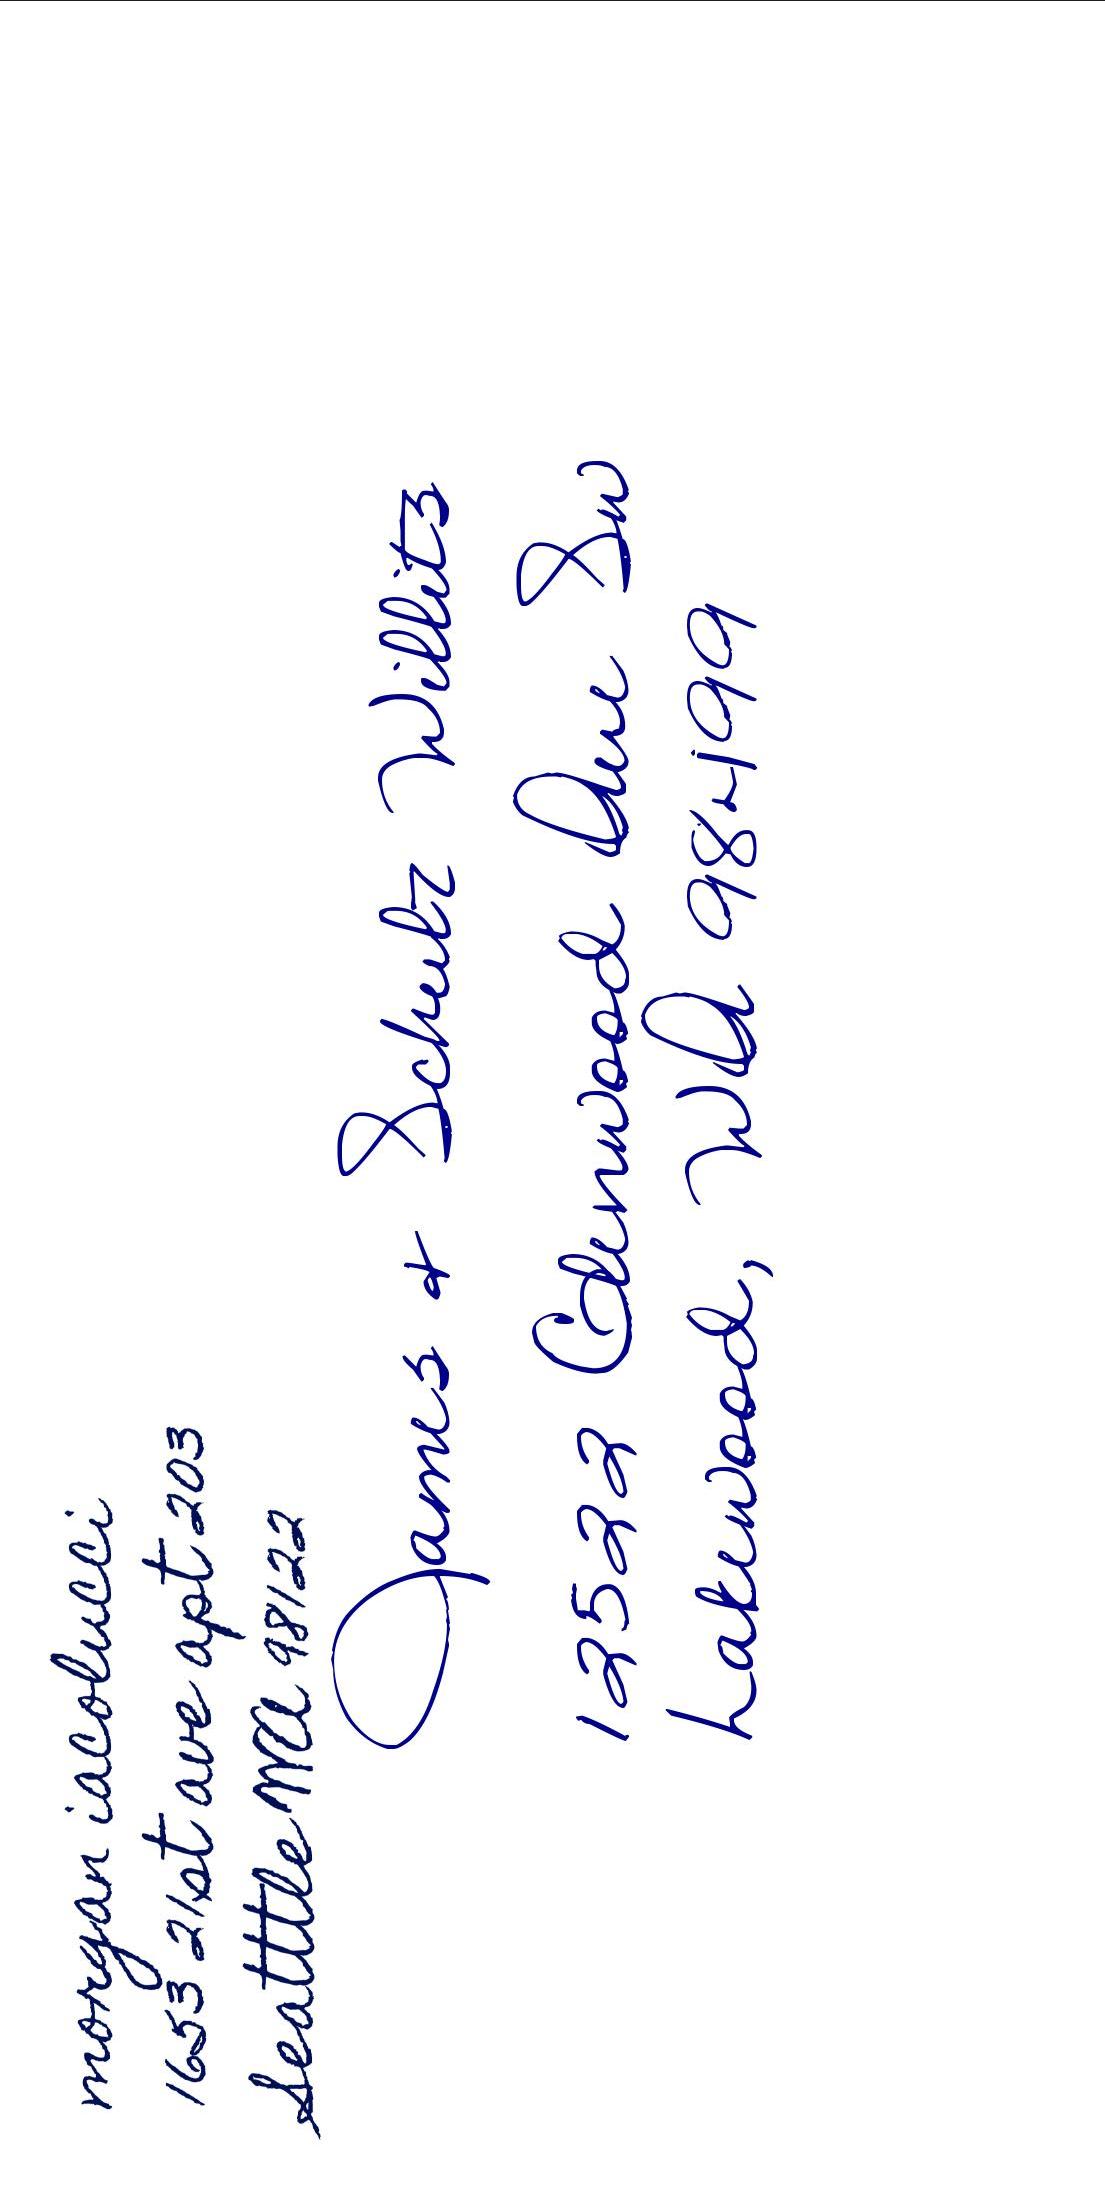 morgan iacolucci
1653 21st ave apt 203
Seattle WA 98122
James + Schulz Willits
12522 Glenwood Ave Sw
Lakewood, WA 98499